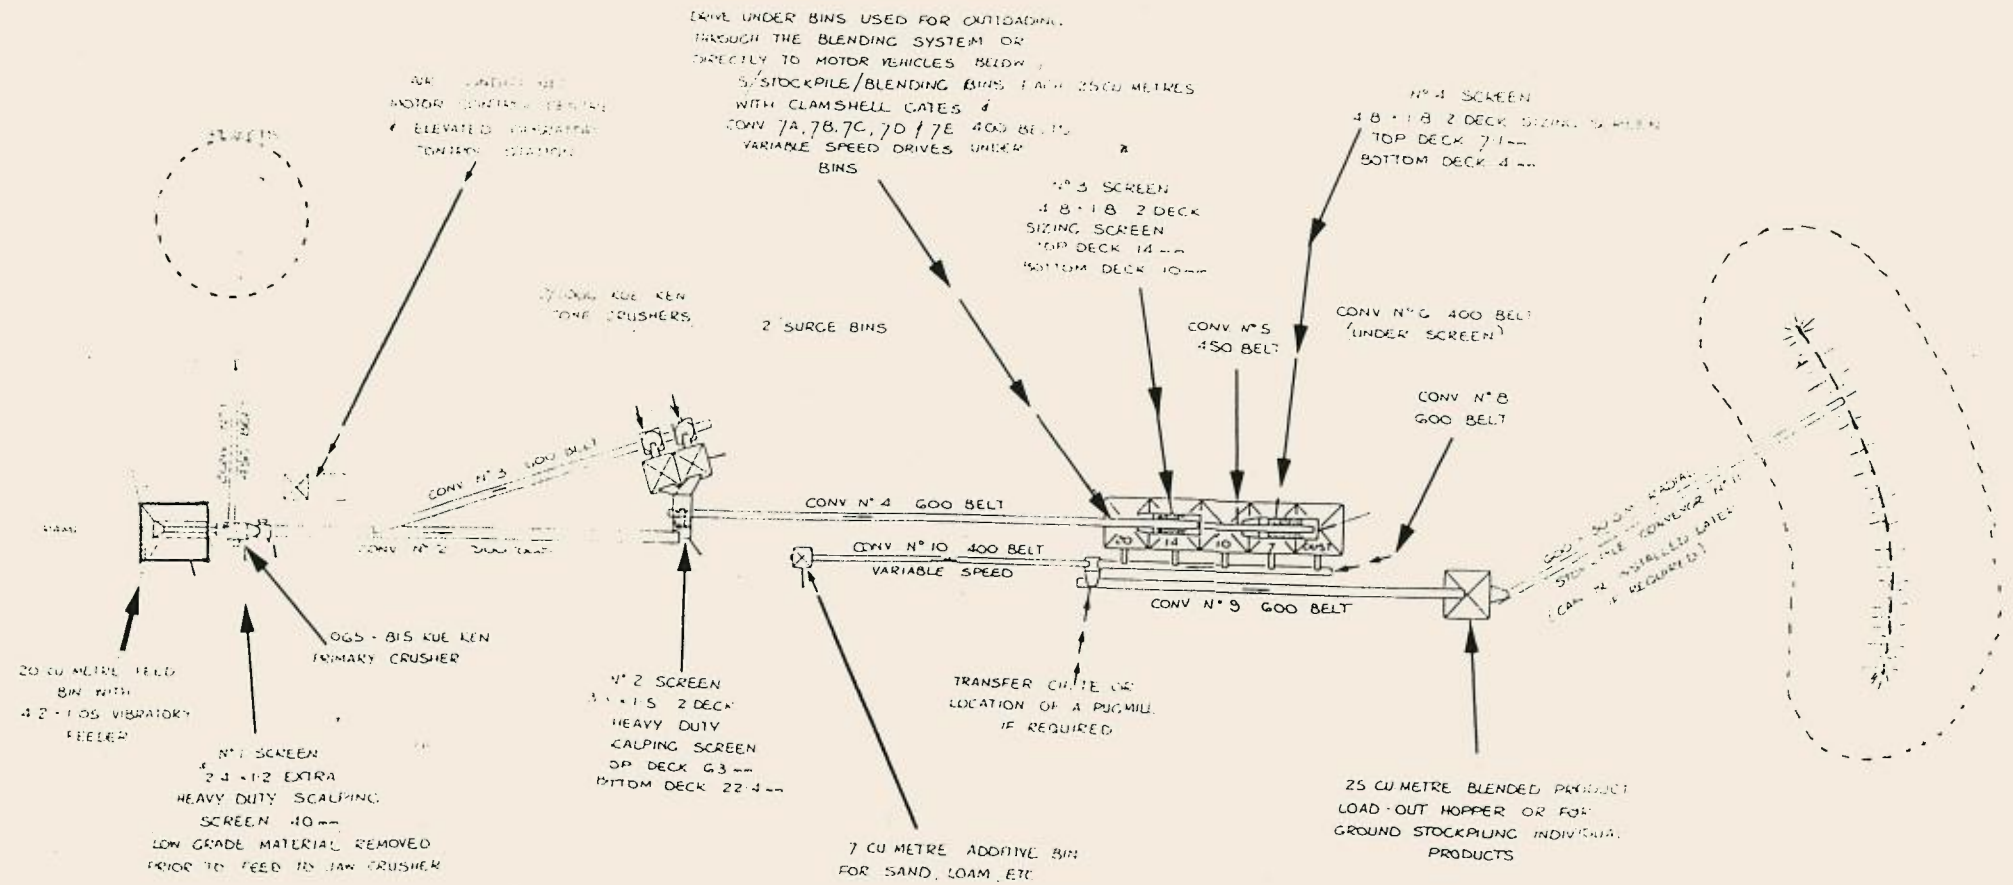 DRIVE UNDER BINS USED FOR OUTLOADING
THROUGH THE BLENDING SYSTEM OR
DIRECTLY TO MOTOR VEHICLES BELOW
5/STOCKPILE/BLENDING BINS EACH 25 CU METRES
WITH CLAMSHELL GATES &
CONV 7A, 7B, 7C, 7D & 7E 400 BELTS
VARIABLE SPEED DRIVES UNDER
BINS
MOTOR CONTROL CENTRE
& ELEVATED OPERATORS
CONTROL STATION
Nº 4 SCREEN
4.8 × 1.8 2 DECK SIZING SCREEN
TOP DECK 7.1 mm
BOTTOM DECK 4 mm
Nº 3 SCREEN
4.8 × 1.8 2 DECK
SIZING SCREEN
TOP DECK 14 mm
BOTTOM DECK 10 mm
KUE KEN
CONE CRUSHERS
2 SURGE BINS
CONV Nº 5
450 BELT
CONV Nº 6 400 BELT
(UNDER SCREEN)
CONV Nº 8
600 BELT
CONV Nº 3 600 BELT
CONV Nº 2
CONV Nº 4 600 BELT
CONV Nº 10 400 BELT
VARIABLE SPEED
20 14 10 7 DUST
CONV Nº 9 600 BELT
RADIAL
STOCKPILE CONVEYOR Nº 11
(CAN BE INSTALLED LATER
IF REQUIRED)
RAMP
065 - 815 KUE KEN
PRIMARY CRUSHER
20 CU METRE FEED
BIN WITH
4.2 × 1.05 VIBRATORY
FEEDER
Nº 1 SCREEN
2.4 × 1.2 EXTRA
HEAVY DUTY SCALPING
SCREEN 40 mm
LOW GRADE MATERIAL REMOVED
PRIOR TO FEED TO JAW CRUSHER
Nº 2 SCREEN
× 1.5 2 DECK
HEAVY DUTY
SCALPING SCREEN
TOP DECK 63 mm
BOTTOM DECK 22.4 mm
TRANSFER CHUTE OR
LOCATION OF A PUGMILL
IF REQUIRED
7 CU METRE ADDITIVE BIN
FOR SAND, LOAM, ETC
25 CU METRE BLENDED PRODUCT
LOAD-OUT HOPPER OR FOR
GROUND STOCKPILING INDIVIDUAL
PRODUCTS